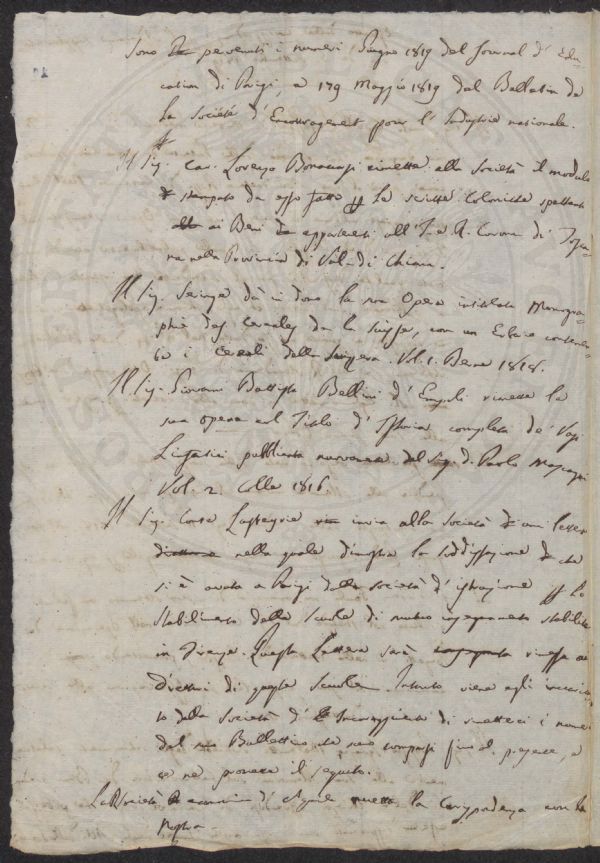 Sono pervenuti i numeri Giugno 1819 del Journal d'Edu-
cation di Parigi, e 179 Maggio 1819 del Bulletin de
la Société d'Encouragement pour l'Industrie nationale.
Il Sig. Cav. Lorenzo rimette alla Società il modulo
stampato da esso fatto le scritte Coloniche spettanti
ai Beni appartenenti all' I. e R. Corona di Tosca-
na nella Provincia di Val di Chiana.
Il Sig. Seringe dà in dono la sua Opera intitolata Monogra-
phie des Cereales de la Suisse, con un Erbario contenen-
te i cereali della Svizzera. Vol. 1. Berne 1818.
Il Sig. Giovanni Battista Bellini d'Empoli rimette la
sua opera col Titolo d'Istoria completa de' Vasi
Linfatici pubblicata nuovamente dal Sig. D. Paolo Mascagni
Vol. 2. Colle 1816.
Il Sig. Conte Lasteyrie invia alla Società una lettera
nella quale dimostra la soddisfazione che
si è avuta a Parigi dalla Società d'istruzione lo
stabilimento delle Scuole di mutuo insegnamento stabilite
in Firenze. Questa Lettera sarà rimessa ai
Direttori di queste Scuole. Intanto viene egli incarica-
to dalla Società d'Incoraggimento di rimetterci i numeri
del suo Bullettino che sono comparsi fino al presente, e
ce ne promette il seguito.
La Società di la Corrispondenza con la
Nostra